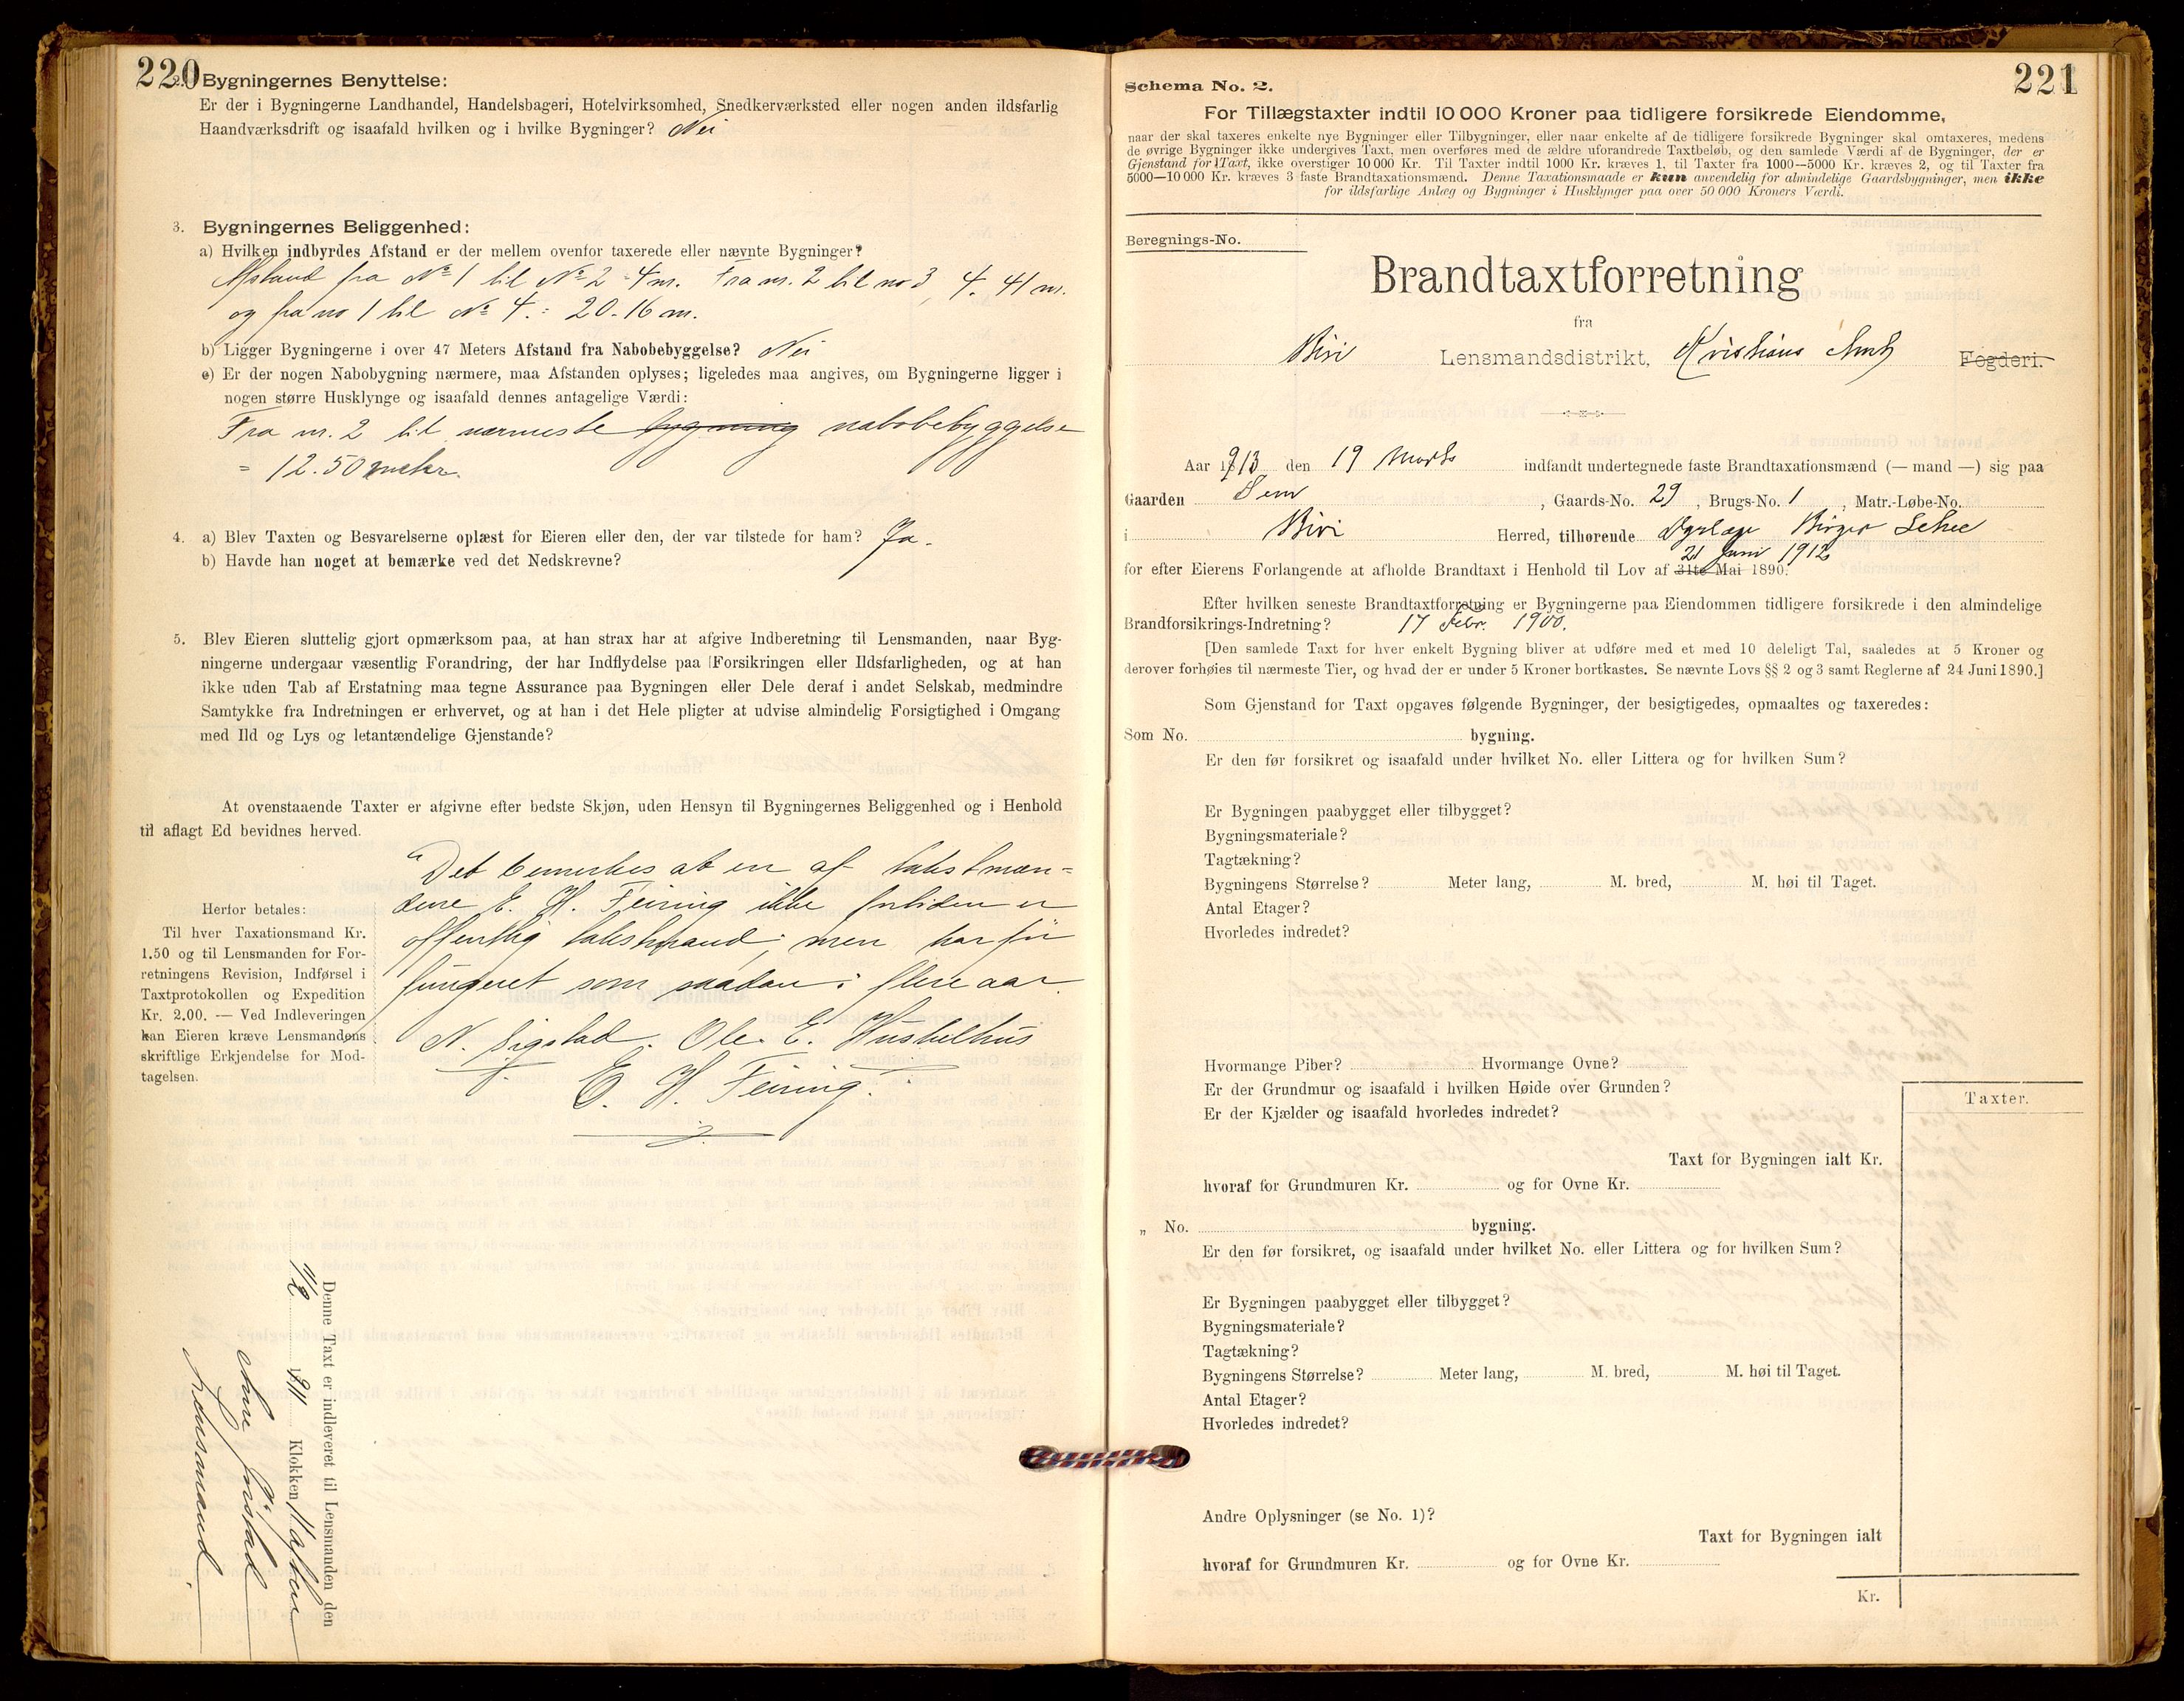 220
2. Bygningernes Benyttelse:
Er der i Bygningerne Landhandel, Handelsbageri, Hotelvirksomhed, Snedkerværksted eller nogen anden ildsfarlig
Haandværksdrift og isaafald hvilken og i hvilke Bygninger? Nei
3. Bygningernes Beliggenhed:
a) Hvilken indbyrdes Afstand er der mellem ovenfor taxerede eller nævnte Bygninger?
Afstand fra No 1 til No 2 = 4 m. Fra nr. 2 til no 3, 4.41 m.
og fra no 1 til No 4. = 20.16 m.
b) Ligger Bygningerne i over 47 Meters Afstand fra Nabobebyggelse? Nei
c) Er der nogen Nabobygning nærmere, maa Afstanden oplyses; ligeledes maa angives, om Bygningerne ligger i
nogen større Husklynge og isaafald dennes antagelige Værdi:
Fra nr. 2 til nærmeste bygning nabobebyggelse
= 12.50 meter.
4. a) Blev Taxten og Besvarelserne oplæst for Eieren eller den, der var tilstede for ham? Ja.
b) Havde han noget at bemærke ved det Nedskrevne?
5. Blev Eieren sluttelig gjort opmærksom paa, at han strax har at afgive Indberetning til Lensmanden, naar Byg-
ningerne undergaar væsentlig Forandring, der har Indflydelse paa Forsikringen eller Ildsfarligheden, og at han
ikke uden Tab af Erstatning maa tegne Assurance paa Bygningen eller Dele deraf i andet Selskab, medmindre
Samtykke fra Indretningen er erhvervet, og at han i det Hele pligter at udvise almindelig Forsigtighed i Omgang
med Ild og Lys og letantændelige Gjenstande?
At ovenstaaende Taxter er afgivne efter bedste Skjøn, uden Hensyn til Bygningernes Beliggenhed og i Henhold
til aflagt Ed bevidnes herved.
Det bemerkes at en af takstmæn-
dene E. H. Feiring ikke fortiden er
offentlig takstmand; men har før
fungeret som saadan i flere aar.
N. Sigstad. Ole E. Hustelhus
E. H. Feiring.
Herfor betales:
Til hver Taxationsmand Kr.
1.50 og til Lensmanden for For-
retningens Revision, Indførsel i
Taxtprotokollen og Expedition
Kr. 2.00. — Ved Indleveringen
kan Eieren kræve Lensmandens
skriftlige Erkjendelse for Mod-
tagelsen.
Denne Taxt er indleveret til Lensmanden den
1911 Klokken 11 aften
Lensmand.
221
Schema No. 2.
For Tillægstaxter indtil 10 000 Kroner paa tidligere forsikrede Eiendomme,
naar der skal taxeres enkelte nye Bygninger eller Tilbygninger, eller naar enkelte af de tidligere forsikrede Bygninger skal omtaxeres, medens
de øvrige Bygninger ikke undergives Taxt, men overføres med de ældre uforandrede Taxtbeløb, og den samlede Værdi af de Bygninger, der er
Gjenstand for Taxt, ikke overstiger 10 000 Kr. Til Taxter indtil 1000 Kr. kræves 1, til Taxter fra 1000—5000 Kr. kræves 2, og til Taxter fra
5000—10 000 Kr. kræves 3 faste Brandtaxationsmænd. Denne Taxationsmaade er kun anvendelig for almindelige Gaardsbygninger, men ikke
for ildsfarlige Anlæg og Bygninger i Husklynger paa over 50 000 Kroners Værdi.
Beregnings-No.
Brandtaxtforretning
fra
Biri Lensmandsdistrikt, Kristians Amt Fogderi.
Aar 1913 den 19 Marts indfandt undertegnede faste Brandtaxationsmænd (— mand —) sig paa
Gaarden Sem, Gaards-No. 29, Brugs-No. 1, Matr.-Løbe-No.
i Biri Herred, tilhørende Dyrlæge Birger
21 Juni 1912
for efter Eierens Forlangende at afholde Brandtaxt i Henhold til Lov af 31te Mai 1890.
Efter hvilken seneste Brandtaxtforretning er Bygningerne paa Eiendommen tidligere forsikrede i den almindelige
Brandforsikrings-Indretning? 17 Febr. 1900.
[Den samlede Taxt for hver enkelt Bygning bliver at udføre med et med 10 deleligt Tal, saaledes at 5 Kroner og
derover forhøies til nærmeste Tier, og hvad der er under 5 Kroner bortkastes. Se nævnte Lovs §§ 2 og 3 samt Reglerne af 24 Juni 1890.]
Som Gjenstand for Taxt opgaves følgende Bygninger, der besigtigedes, opmaaltes og taxeredes:
Som No. bygning.
Er den før forsikret og isaafald under hvilket No. eller Littera og for hvilken Sum?
Er Bygningen paabygget eller tilbygget?
Bygningsmateriale?
Tagtækning?
Bygningens Størrelse? Meter lang, M. bred, M. høi til Taget.
Antal Etager?
Hvorledes indredet?
Hvormange Piber? Hvormange Ovne?
Er der Grundmur og isaafald i hvilken Høide over Grunden?
Er der Kjælder og isaafald hvorledes indredet?
Taxter.
Taxt for Bygningen ialt Kr.
hvoraf for Grundmuren Kr. og for Ovne Kr.
„ No. bygning.
Er den før forsikret, og isaafald under hvilket No. eller Littera og for hvilken Sum?
Er Bygningen paabygget eller tilbygget?
Bygningsmateriale?
Tagtækning?
Bygningens Størrelse? Meter lang, M. bred, M. høi til Taget.
Antal Etager?
Hvorledes indredet?
Andre Oplysninger (se No. 1)?
Taxt for Bygningen ialt
hvoraf for Grundmuren Kr. og for Ovne Kr.
Kr.